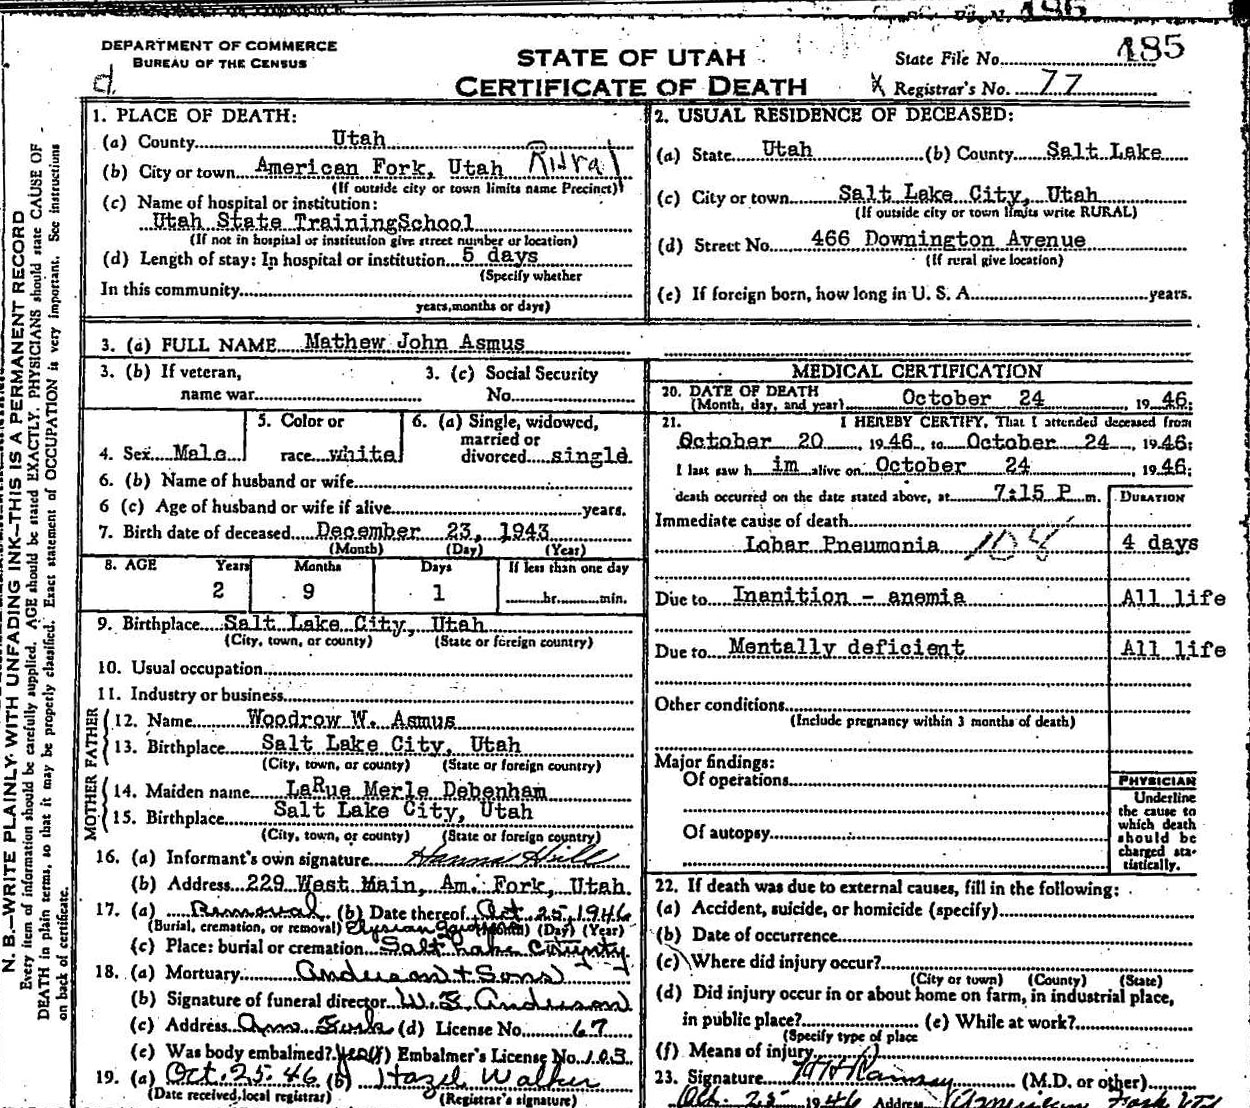 DEPARTMENT OF COMMERCE
BUREAU OF THE CENSUS
d.
STATE OF UTAH
CERTIFICATE OF DEATH
State File No. 185
Registrar's No. 77
N. B.—WRITE PLAINLY WITH UNFADING INK—THIS IS A PERMANENT RECORD
Every item of information should be carefully supplied. AGE should be stated EXACTLY. PHYSICIANS should state CAUSE OF
DEATH in plain terms, so that it may be properly classified. Exact statement of OCCUPATION is very important. See instructions
on back of certificate.
1. PLACE OF DEATH:
(a) County Utah
(b) City or town American Fork, Utah Rural
(If outside city or town limits name Precinct)
(c) Name of hospital or institution:
Utah State TrainingSchool
(If not in hospital or institution give street number or location)
(d) Length of stay: In hospital or institution 5 days
(Specify whether
In this community
years, months or days)
2. USUAL RESIDENCE OF DECEASED:
(a) State Utah (b) County Salt Lake
(c) City or town Salt Lake City, Utah
(If outside city or town limits write RURAL)
(d) Street No. 466 Downington Avenue
(If rural give location)
(e) If foreign born, how long in U. S. A. years.
3. (a) FULL NAME Mathew John Asmus
3. (b) If veteran, name war
3. (c) Social Security No.
4. Sex Male
5. Color or race white
6. (a) Single, widowed, married or divorced single
6. (b) Name of husband or wife
6 (c) Age of husband or wife if alive years.
7. Birth date of deceased December 23, 1943
(Month) (Day) (Year)
8. AGE Years Months Days If less than one day
2 9 1 hr. min.
9. Birthplace Salt Lake City, Utah
(City, town, or county) (State or foreign country)
10. Usual occupation
11. Industry or business
FATHER
12. Name Woodrow W. Asmus
13. Birthplace Salt Lake City, Utah
(City, town, or county) (State or foreign country)
MOTHER
14. Maiden name LaRue Merle Debenham
15. Birthplace Salt Lake City, Utah
(City, town, or county) (State or foreign country)
16. (a) Informant's own signature Hanna Hill
(b) Address 229 West Main, Am. Fork, Utah.
17. (a) Removal (b) Date thereof Oct 25, 1946
(Burial, cremation, or removal) Elysian (Month) (Day) (Year)
(c) Place: burial or cremation Salt Lake County
18. (a) Mortuary Anderson & Sons
(b) Signature of funeral director W. E. Anderson
(c) Address Am. Fork (d) License No. 67
(e) Was body embalmed? yes (f) Embalmer's License No. 103
19. (a) Oct. 25. 46 (b) Hazel Walker
(Date received, local registrar) (Registrar's signature)
MEDICAL CERTIFICATION
20. DATE OF DEATH
(Month, day, and year) October 24 1946:
21. I HEREBY CERTIFY, That I attended deceased from
October 20, 1946, to October 24, 1946:
I last saw him alive on October 24, 1946:
death occurred on the date stated above, at 7:15 P m.
DURATION
Immediate cause of death
Lobar Pneumonia 108 4 days
Due to Inanition - anemia All life
Due to Mentally deficient All life
Other conditions
(Include pregnancy within 3 months of death)
Major findings:
Of operations
Of autopsy
PHYSICIAN
Underline
the cause to
which death
should be
charged sta-
tistically.
22. If death was due to external causes, fill in the following:
(a) Accident, suicide, or homicide (specify)
(b) Date of occurrence
(c) Where did injury occur?
(City or town) (County) (State)
(d) Did injury occur in or about home on farm, in industrial place,
in public place? (e) While at work?
(Specify type of place
(f) Means of injury
23. Signature Ramsey (M.D. or other)
Oct. 25 1946 Address American Fork Ut